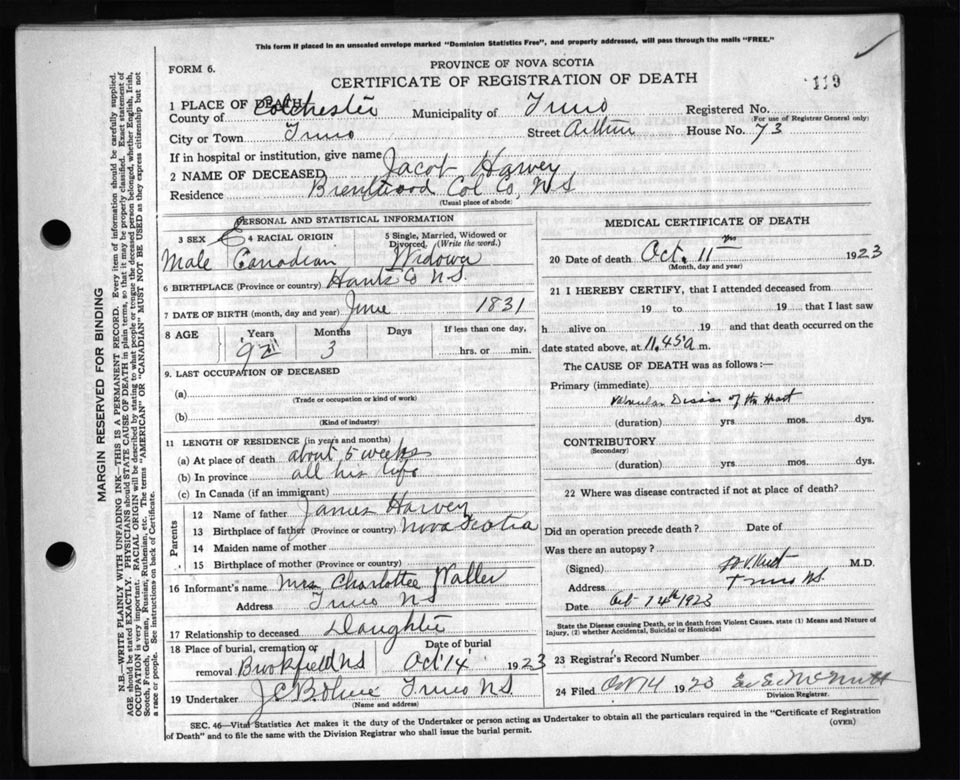 This form if placed in an unsealed envelope marked "Dominion Statistics Free", and properly addressed, will pass through the mails "FREE."
FORM 6.
PROVINCE OF NOVA SCOTIA
CERTIFICATE OF REGISTRATION OF DEATH
119
1 PLACE OF DEATH
County of Colchester Municipality of Truro Registered No.
(For use of Registrar General only)
City or Town Truro Street Arthur House No. 73
If in hospital or institution, give name
2 NAME OF DECEASED Jacob Harvey
Residence Brentwood Col Co, N S
(Usual place of abode)
PERSONAL AND STATISTICAL INFORMATION
3 SEX 4 RACIAL ORIGIN 5 Single, Married, Widowed or Divorced, (Write the word.)
Male Canadian Widower
6 BIRTHPLACE (Province or country) Hants Co N S.
7 DATE OF BIRTH (month, day and year) June 1831
8 AGE Years Months Days If less than one day,
92 3 hrs. or min.
9. LAST OCCUPATION OF DECEASED
(a)
(Trade or occupation or kind of work)
(b)
(Kind of industry)
11 LENGTH OF RESIDENCE (in years and months)
(a) At place of death about 5 weeks
(b) In province all his life
(c) In Canada (if an immigrant)
Parents
12 Name of father James Harvey
13 Birthplace of father (Province or country) Nova Scotia
14 Maiden name of mother
15 Birthplace of mother (Province or country)
16 Informant's name Mrs Charlottee Waller
Address Truro N S
17 Relationship to deceased Daughter
18 Place of burial, cremation or removal Brookfield N S
Date of burial Oct 14 1923
19 Undertaker Truro N S.
(Name and address)
MEDICAL CERTIFICATE OF DEATH
20 Date of death Oct. 11 1923
(Month, day and year)
21 I HEREBY CERTIFY, that I attended deceased from
19 to 19 that I last saw
h alive on 19 and that death occurred on the
date stated above, at 11.45 a m.
The CAUSE OF DEATH was as follows:—
Primary (immediate)
Valvular Disease of the Heart
(duration) yrs. mos. dys.
CONTRIBUTORY
(Secondary)
(duration) yrs. mos. dys.
22 Where was disease contracted if not at place of death?
Did an operation precede death? Date of
Was there an autopsy?
(Signed) M.D.
Address Truro N.S.
Date Oct 14th 1923
State the Disease causing Death, or in death from Violent Causes, state (1) Means and Nature of
Injury, (2) whether Accidental, Suicidal or Homicidal
23 Registrar's Record Number
24 Filed Oct 14 1923 McNutt
Division Registrar.
SEC. 46—Vital Statistics Act makes it the duty of the Undertaker or person acting as Undertaker to obtain all the particulars required in the "Certificate of Registration
of Death" and to file the same with the Division Registrar who shall issue the burial permit.
(OVER)
MARGIN RESERVED FOR BINDING
N.B.—WRITE PLAINLY WITH UNFADING INK—THIS IS A PERMANENT RECORD. Every item of information should be carefully supplied.
AGE should be stated EXACTLY. PHYSICIANS should STATE CAUSE OF DEATH in plain terms, so that it may be properly classified. Exact statement of
OCCUPATION is very important. RACIAL ORIGIN will be described by stating to what people or tongue the deceased person belonged, whether English, Irish,
Scotch, French, German, Russian, Ruthenian, etc. The terms "AMERICAN" OR "CANADIAN" MUST NOT BE USED as they express citizenship but not
a race or people. See instructions on back of Certificate.